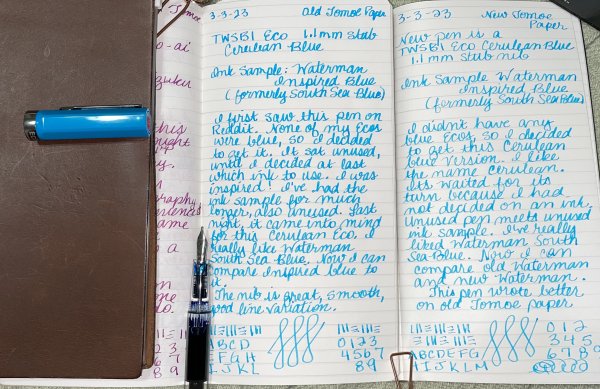 3-3-23 Old Tomoe Paper
TWSBI Eco 1.1 mm Stub
Cerulean Blue
Ink Sample: Waterman
Inspired Blue
(formerly South Sea Blue)
I first saw this pen on
Reddit. None of my Ecos
were blue, so I decided
to get it. It sat unused,
until I decided at last
which ink to use. I was
inspired! I've had the
ink sample for much
longer, also unused. Last
night, it came into mind
for this Cerulean Eco. I
really like Waterman
South Sea Blue. Now I can
compare Inspired blue to
it.
The nib is great, smooth,
good line variation.
ABCD
EFGH
IJKL
0123
4567
89
3-3-23 New Tomoe
Paper
New pen is a
TWSBI Eco Cerulean Blue
1.1 mm stub nib
Ink Sample Waterman
Inspired Blue
(formerly South Sea Blue)
I didn't have any
blue Ecos, so I decided
to get this Cerulean
blue version. I like
the name Cerulean.
Its waited for its
turn because I had
not decided on an ink.
Unused pen meets unused
ink sample. I've really
liked Waterman South
Sea Blue. Now I can
compare old Waterman
and new Waterman.
This pen wrote better
on old Tomoe paper
ABCDEFG
HIJKLM
012
345
6789